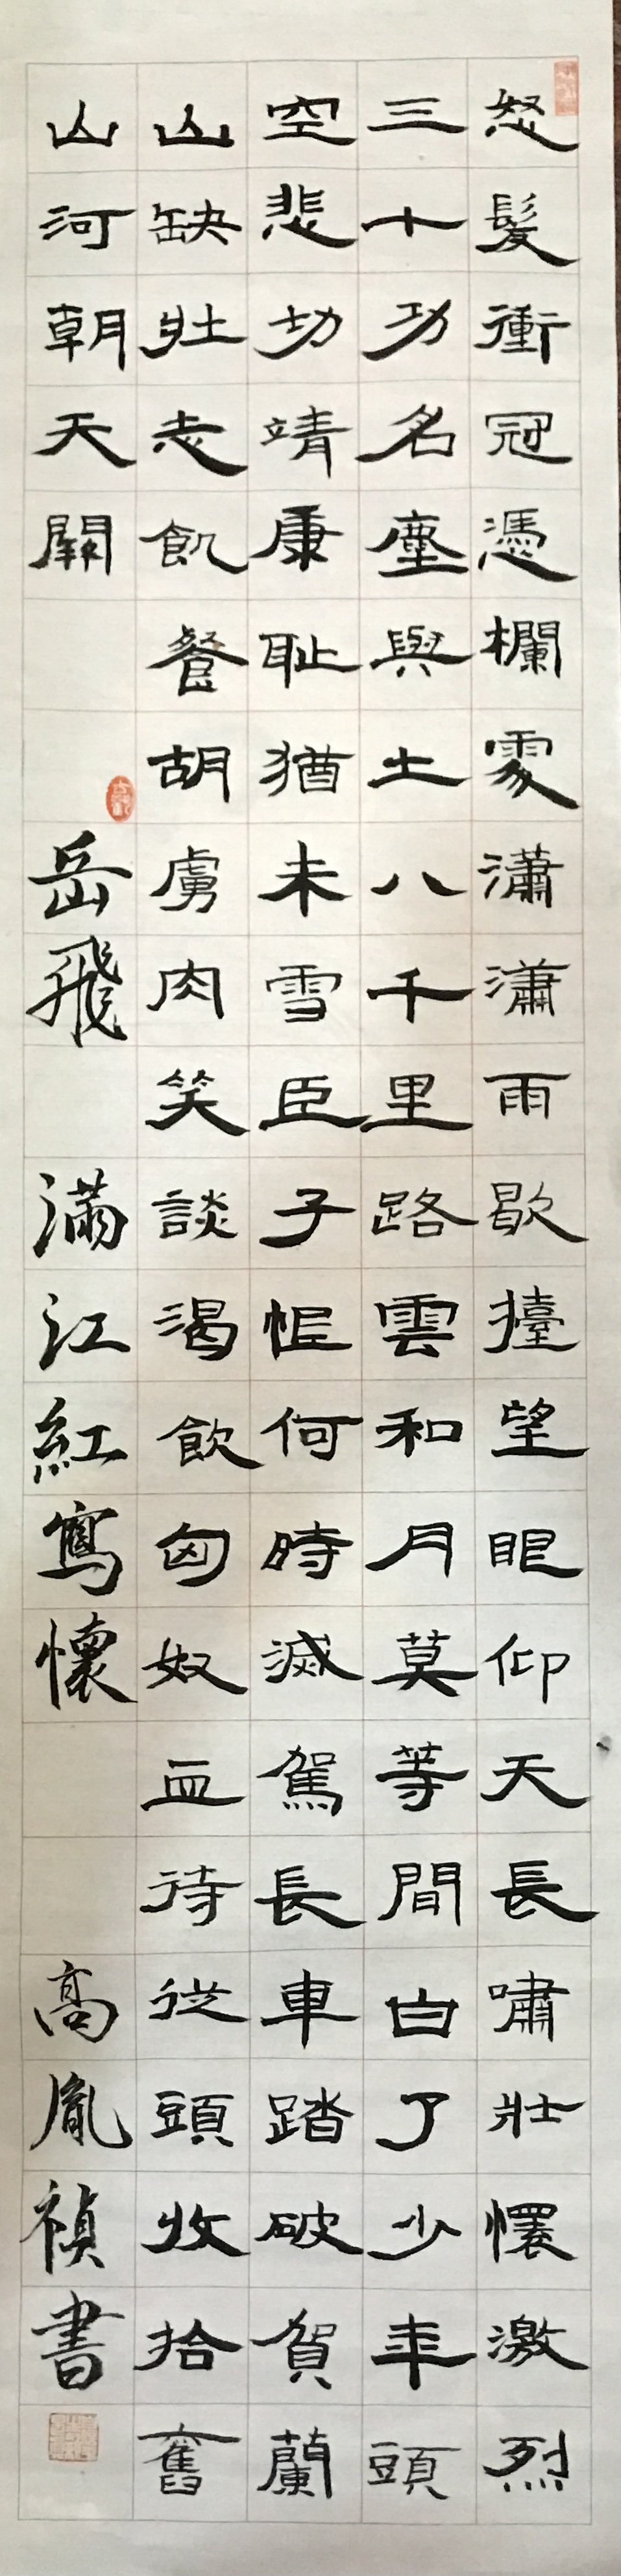 怒髮衝冠憑欄處瀟瀟雨歇擡望眼仰天長嘯壯懷激烈
三十功名塵與土八千里路雲和月莫等間白了少年頭
空悲切靖康耻猶未雪臣子恨何時滅駕長車踏破賀蘭
山缺壯志飢餐胡虜肉笑談渴飲匈奴血待從頭收拾舊
山河朝天闕 岳飛 滿江紅寫懷 高胤禎書